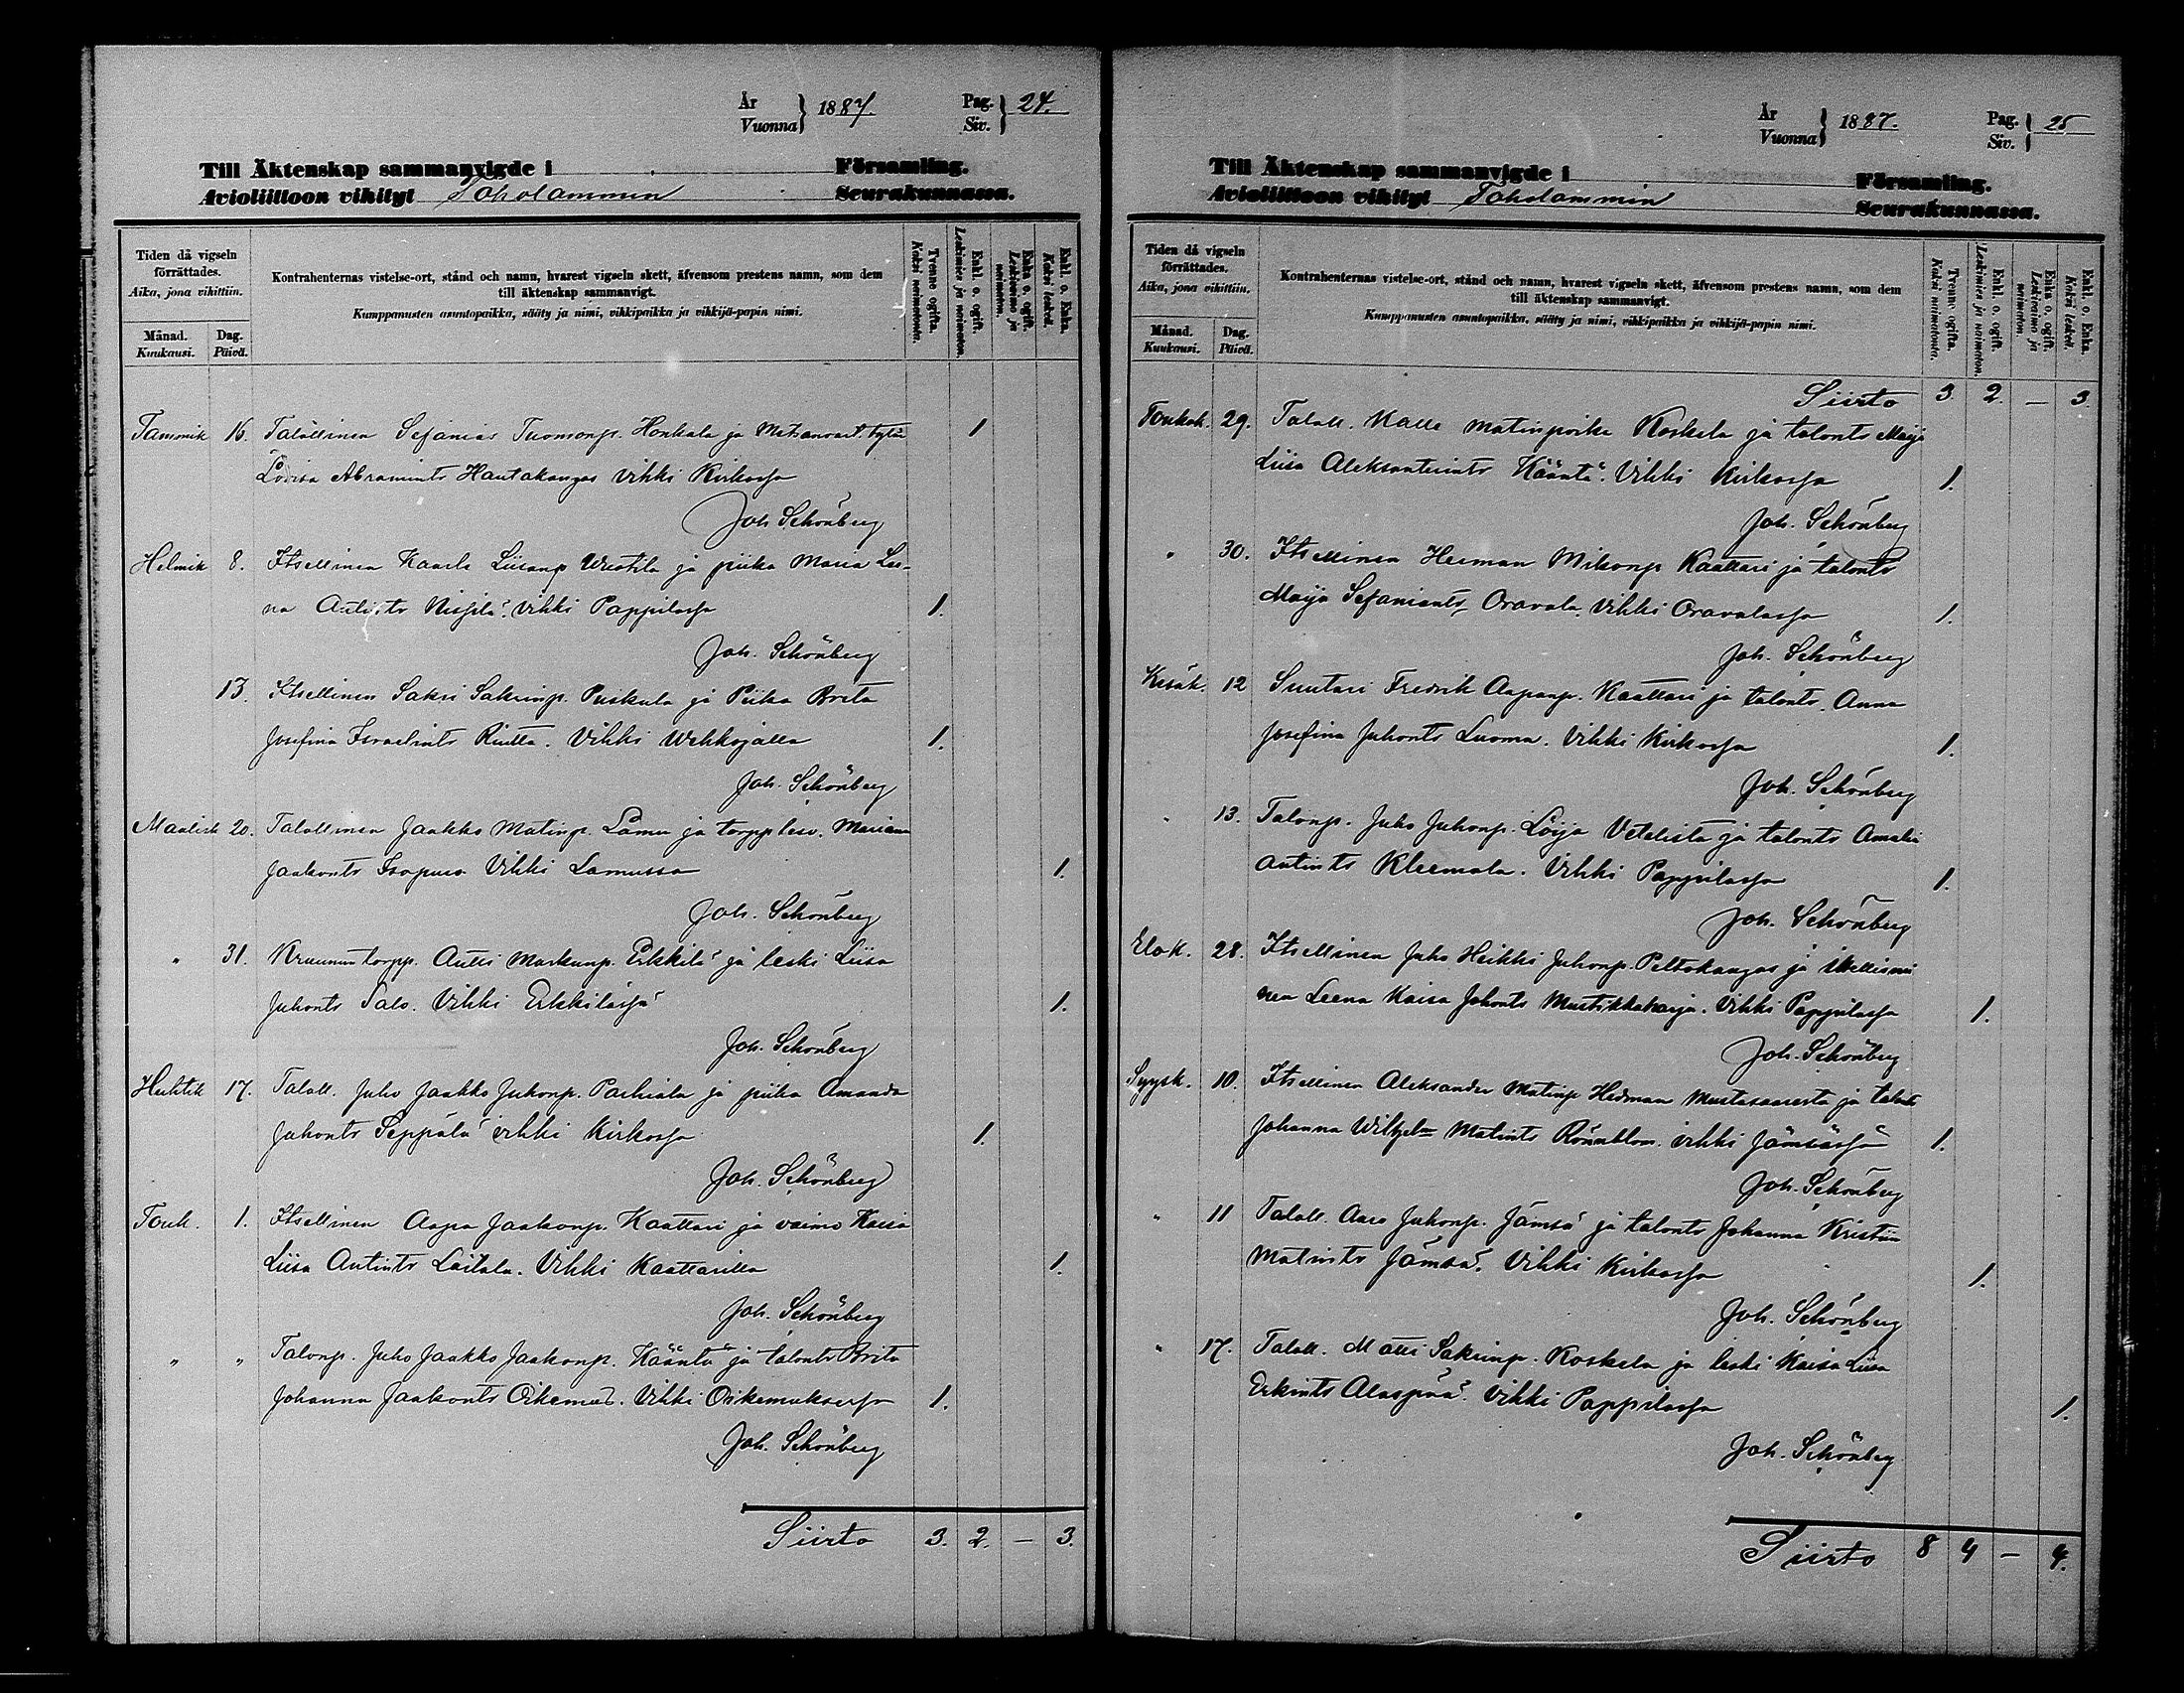 År
Vuonna } 1887.
Pag.
Siv. } 24.
Till Äktenskap sammanvigde i Församling.
Avioliittoon vihityt Toholammin Seurakunnassa.
Tiden då vigseln förrättades.
Aika, jona vihittiin.
Månad.
Kuukausi.
Dag.
Päivä.
Kontrahenternas vistelse-ort, stånd och namn, hvarest vigseln skett, äfvensom prestens namn, som dem
till äktenskap sammanvigt.
Kumppanusten asuntopaikka, sääty ja nimi, vihkipaikka ja vihkijä-papin nimi.
Tvenne ogifta.
Kaksi naimatonta.
Enkl. o. ogift.
Leskimies ja naimaton.
Enka o. ogift.
Leskivaimo ja naimaton.
Enkl. o. Enka.
Kaksi leskeä.
Tammik 16. Talollinen Sefanias Tuomonp. Honkala ja Metsänvart. tytär 1
Lovisa Abramints Hautakangas Vihki Kirkossa
Joh Schönberg
Helmik 8. Itsellinen Kaarle Liisanp Wuotila ja piika Maria Lee-
na Antints Nissilä. Vihki Pappilassa 1.
Joh. Schönberg
13. Itsellinen Sakri Sakrinp. Puskala ja Piika Brita
Josefina Israelints Riutta. Vihki Wehkojalla 1.
Joh. Schönberg
Maalisk 20. Talollinen Jaakko Matinp. Lamu ja torpp lesk. Mariana
Jaakonts Isopuro Vihki Lamussa 1.
Joh. Schönberg
" 31. Kruunun torpp. Antti Markunp. Erkkilä ja leski Liisa
Juhonts Salo. Vihki Erkkilässä 1.
Joh. Schönberg
Huhtik 17. Taloll. Juho Jaakko Juhonp. Parhiala ja piika Amanda
Juhonts Seppälä vihki Kirkossa 1.
Joh. Schönberg
Touk. 1. Itsellinen Aapo Jaakonp. Kaattari ja vaimo Kaisa
Liisa Antints Laitala. Vihki Kaattarilla 1.
Joh. Schönberg
" " Talonp. Juho Jaakko Jaakonp. Kääntä ja talonts Brita
Johanna Jaakonts Oikemus. Vihki Oikemuksessa 1.
Joh. Schönberg
Siirto 3. 2. — 3.
År
Vuonna } 1887.
Pag.
Siv. } 25
Till Äktenskap sammanvigde i Församling.
Avioliittoon vihityt Toholammin Seurakunnassa.
Tiden då vigseln förrättades.
Aika, jona vihittiin.
Månad.
Kuukausi.
Dag.
Päivä.
Kontrahenternas vistelse-ort, stånd och namn, hvarest vigseln skett, äfvensom prestens namn, som dem
till äktenskap sammanvigt.
Kumppanusten asuntopaikka, sääty ja nimi, vihkipaikka ja vihkijä-papin nimi.
Tvenne ogifta.
Kaksi naimatonta.
Enkl. o. ogift.
Leskimies ja naimaton.
Enka o. ogift.
Leskivaimo ja naimaton.
Enkl. o. Enka.
Kaksi leskeä.
Siirto 3 2. — 3.
Toukok. 29. Taloll. Kalle Matinpoika Koskela ja talonts Maija
Liisa Aleksanterints Kääntä. Vihki Kirkossa 1.
Joh. Schönberg
" 30. Itsellinen Herman Mikonp Kaattari ja talonts
Maija Sefaniants Oravala. Vihki Oravalassa 1.
Joh. Schönberg
Kesäk. 12 Suutari Fredrik Aapanp. Kaattari ja talonts. Anna
Josefina Juhonts Luoma. Vihki Kirkossa 1.
Joh. Schönberg
" 13. Talonp. Juho Juhonp. Löija Vetelistä ja talonts Amalia
Antints Kleemola. Vihki Pappilassa 1.
Joh. Schönberg
Elok. 28. Itsellinen Juho Heikki Juhonp. Peltokangas ja
nen Leena Kaisa Johonts Mustikkaharju. Vihki Pappilassa 1.
Joh. Schönberg
Syysk. 10. Itsellinen Aleksander Matinp Hedman Mustasaaresta ja talonts
Johanna Wilhjelm Matints Rönnblom. vihki Jämsässä 1.
Joh. Schönberg
" 11 Taloll. Aaro Juhonp. Jämsä ja talonts Johanna Kristiin
Matints Jämsä. Vihki Kirkossa 1.
Joh. Schönberg
" 17. Taloll. Matti Sakrinp. Koskela ja leski Kaisa Liisa
Erkints Alaspää. Vihki Pappilassa 1.
Joh. Schönberg
Siirto 8 4 — 4.